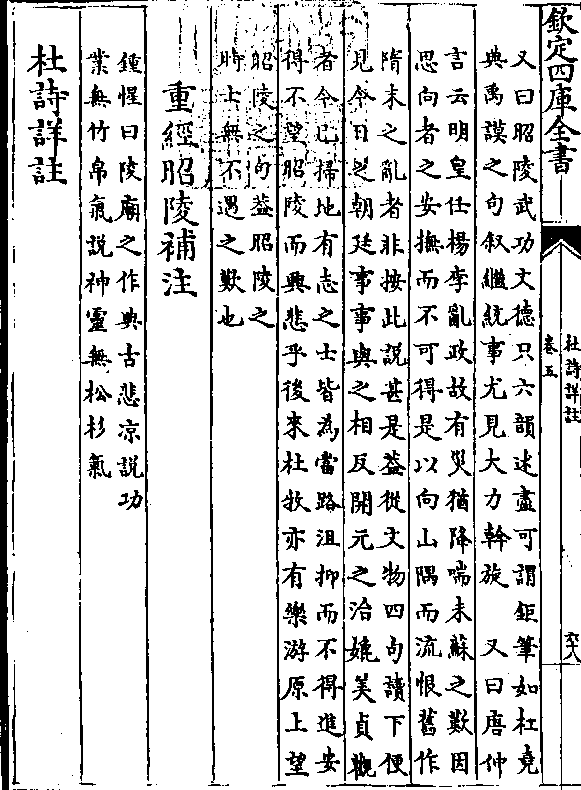 欽定四庫全書
杜詩詳註
卷五
六八
又曰昭陵武功文德只六韻述盡可謂鉅筆如杜堯
典禹謨之句叙繼統事尤見大力斡旋　又曰唐仲
言云明皇任楊李亂政故有災猶降喘未蘇之歎因
思向者之安撫而不可得是以向山隅而流恨舊作
隋末之亂者非按此說甚是葢從文物四句讀下便
見今日之朝廷事事與之相反開元之治媲美貞觀
者今已掃地有志之士皆為當路沮抑而不得進安
得不望昭陵而興悲乎後來杜牧亦有樂游原上望
昭陵之句葢昭陵之
時士無不遇之歎也
重經昭陵補注
鍾惺曰陵廟之作典古悲凉說功
業無竹帛氣說神靈無松杉氣
杜詩詳註